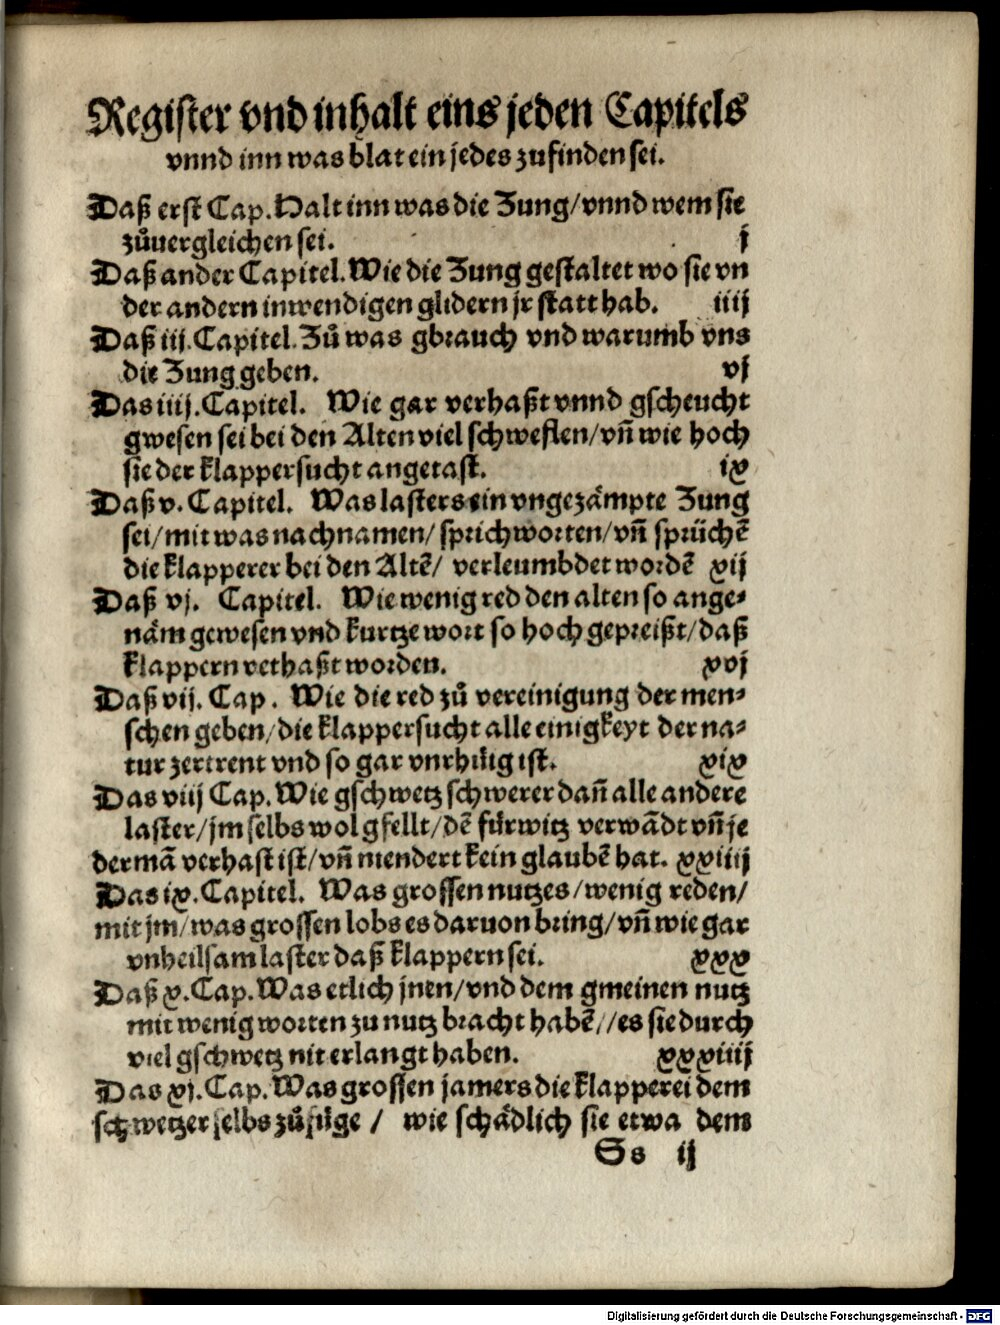 Register vnd inhalt eins jeden Capitels
vnnd inn was blat ein jedes zufinden sei.
Daß erst Cap. Halt inn was die Zung/vnnd wem sie
zůuergleichen sei. j
Daß ander Capitel. Wie die Zung gestaltet wo sie vn
der andern inwendigen glidern jr statt hab. iiij
Daß iij. Capitel. Zů was gbrauch vnd warumb vns
die Zung geben. vj
Das iiij. Capitel. Wie gar verhaßt vnnd gscheucht
gwesen sei bei den Alten viel schweflen/vñ wie hoch
sie der klappersucht angetast. ix
Daß v. Capitel. Was lasters ein vngezämpte Zung
sei/mit was nachnamen/sprichworten/vñ sprüchẽ
die klapperer bei den Altẽ/ verleumbdet wordẽ xij
Daß vj. Capitel. Wie wenig red den alten so ange⸗
näm gewesen vnd kurtze wort so hoch gepreißt/daß
klappern verhaßt worden. xvj
Daß vij. Cap. Wie die red zů vereinigung der men⸗
schen geben/die klappersucht alle einigkeyt der na⸗
tur zertrent vnd so gar vnrhüig ist. xix
Das viij Cap. Wie gschwetz schwerer dañ alle andere
laster/jm selbs wol gfellt/dẽ fürwitz verwãdt vñ je
dermã verhast ist/vñ niendert kein glaubẽ hat. xxiiij
Das ix. Capitel. Was grossen nutzes/wenig reden/
mit jm/was grossen lobs es daruon bring/vñ wie gar
vnheilsam laster daß klappern sei. xxx
Daß x. Cap. Was etlich jnen/vnd dem gmeinen nutz
mit wenig worten zu nutz bracht habẽ//es sie durch
viel gschwetz nit erlangt haben. xxxiiij
Das xj. Cap. Was grossen jamers die klapperei dem
schwetzer selbs zůfüge / wie schädlich sie etwa dem
Ss ij
Digitalisierung gefördert durch die Deutsche Forschungsgemeinschaft - DFG